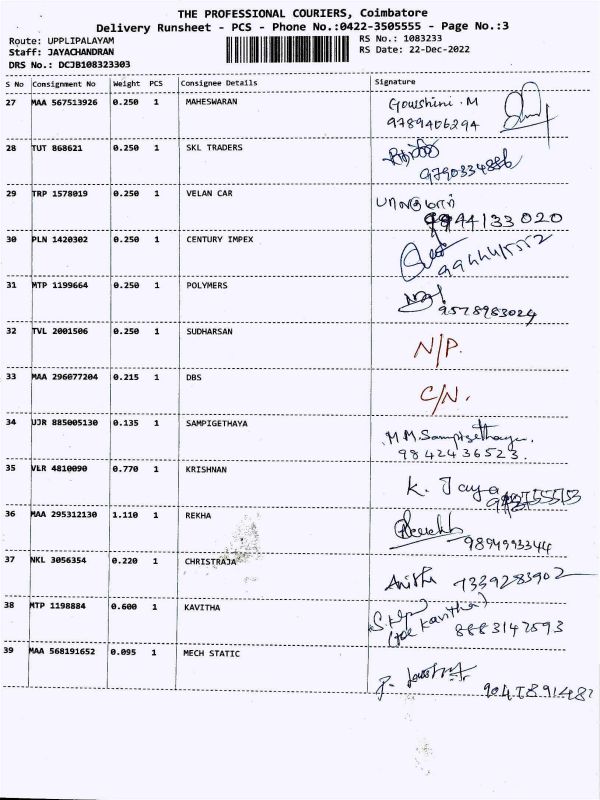 THE PROFESSIONAL COURIERS, Coimbatore
Delivery Runsheet - PCS - Phone No.:0422-3505555 - Page No.:3
Route: UPPLIPALAYAM
Staff: JAYACHANDRAN
DRS No.: DCJB108323303
RS No.: 1083233
RS Date: 22-Dec-2022
S No Consignment No Weight PCS Consignee Details Signature
27 MAA 567513926 0.250 1 MAHESWARAN Gowshini.M
9789406294
28 TUT 868621 0.250 1 SKL TRADERS
9790334886
29 TRP 1578019 0.250 1 VELAN CAR
9944133020
30 PLN 1420302 0.250 1 CENTURY IMPEX
31 MTP 1199664 0.250 1 POLYMERS
9578983024
32 TVL 2001506 0.250 1 SUDHARSAN N/P.
33 MAA 296077204 0.215 1 DBS C/N.
34 UJR 885005130 0.135 1 SAMPIGETHAYA M.M.Sampigethaya.
9842436523.
35 VLR 4810090 0.770 1 KRISHNAN K. Jaya
36 MAA 295312130 1.110 1 REKHA
9894993344
37 NKL 3056354 0.220 1 CHRISTRAJA Anitha 7339283902
38 MTP 1198884 0.600 1 KAVITHA
(for Kavitha)
8883147593
39 MAA 568191652 0.095 1 MECH STATIC